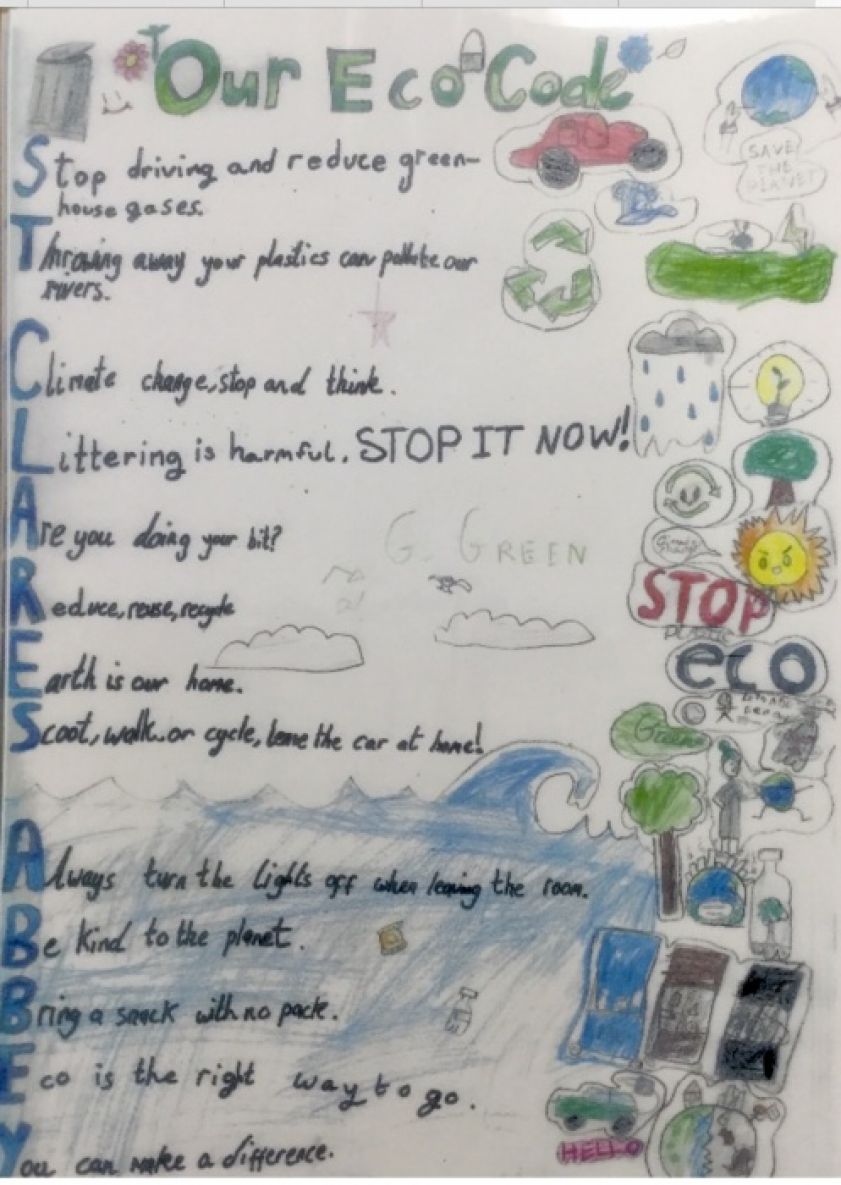 Our Eco Code
Stop driving and reduce green-
house gases.
SAVE
THE
PLANET
Throwing away your plastics can pollute our
rivers.
Climate change, stop and think.
Littering is harmful. STOP IT NOW!
Are you doing your bit?
Go GREEN
Reduce, reuse, recycle
STOP
PLASTIC
eco
Earth is our home.
Scoot, walk or cycle, leave the car at home!
Green
Always turn the lights off when leaving the room.
Be kind to the planet.
Bring a snack with no pack.
Eco is the right way to go.
HELLO
You can make a difference.